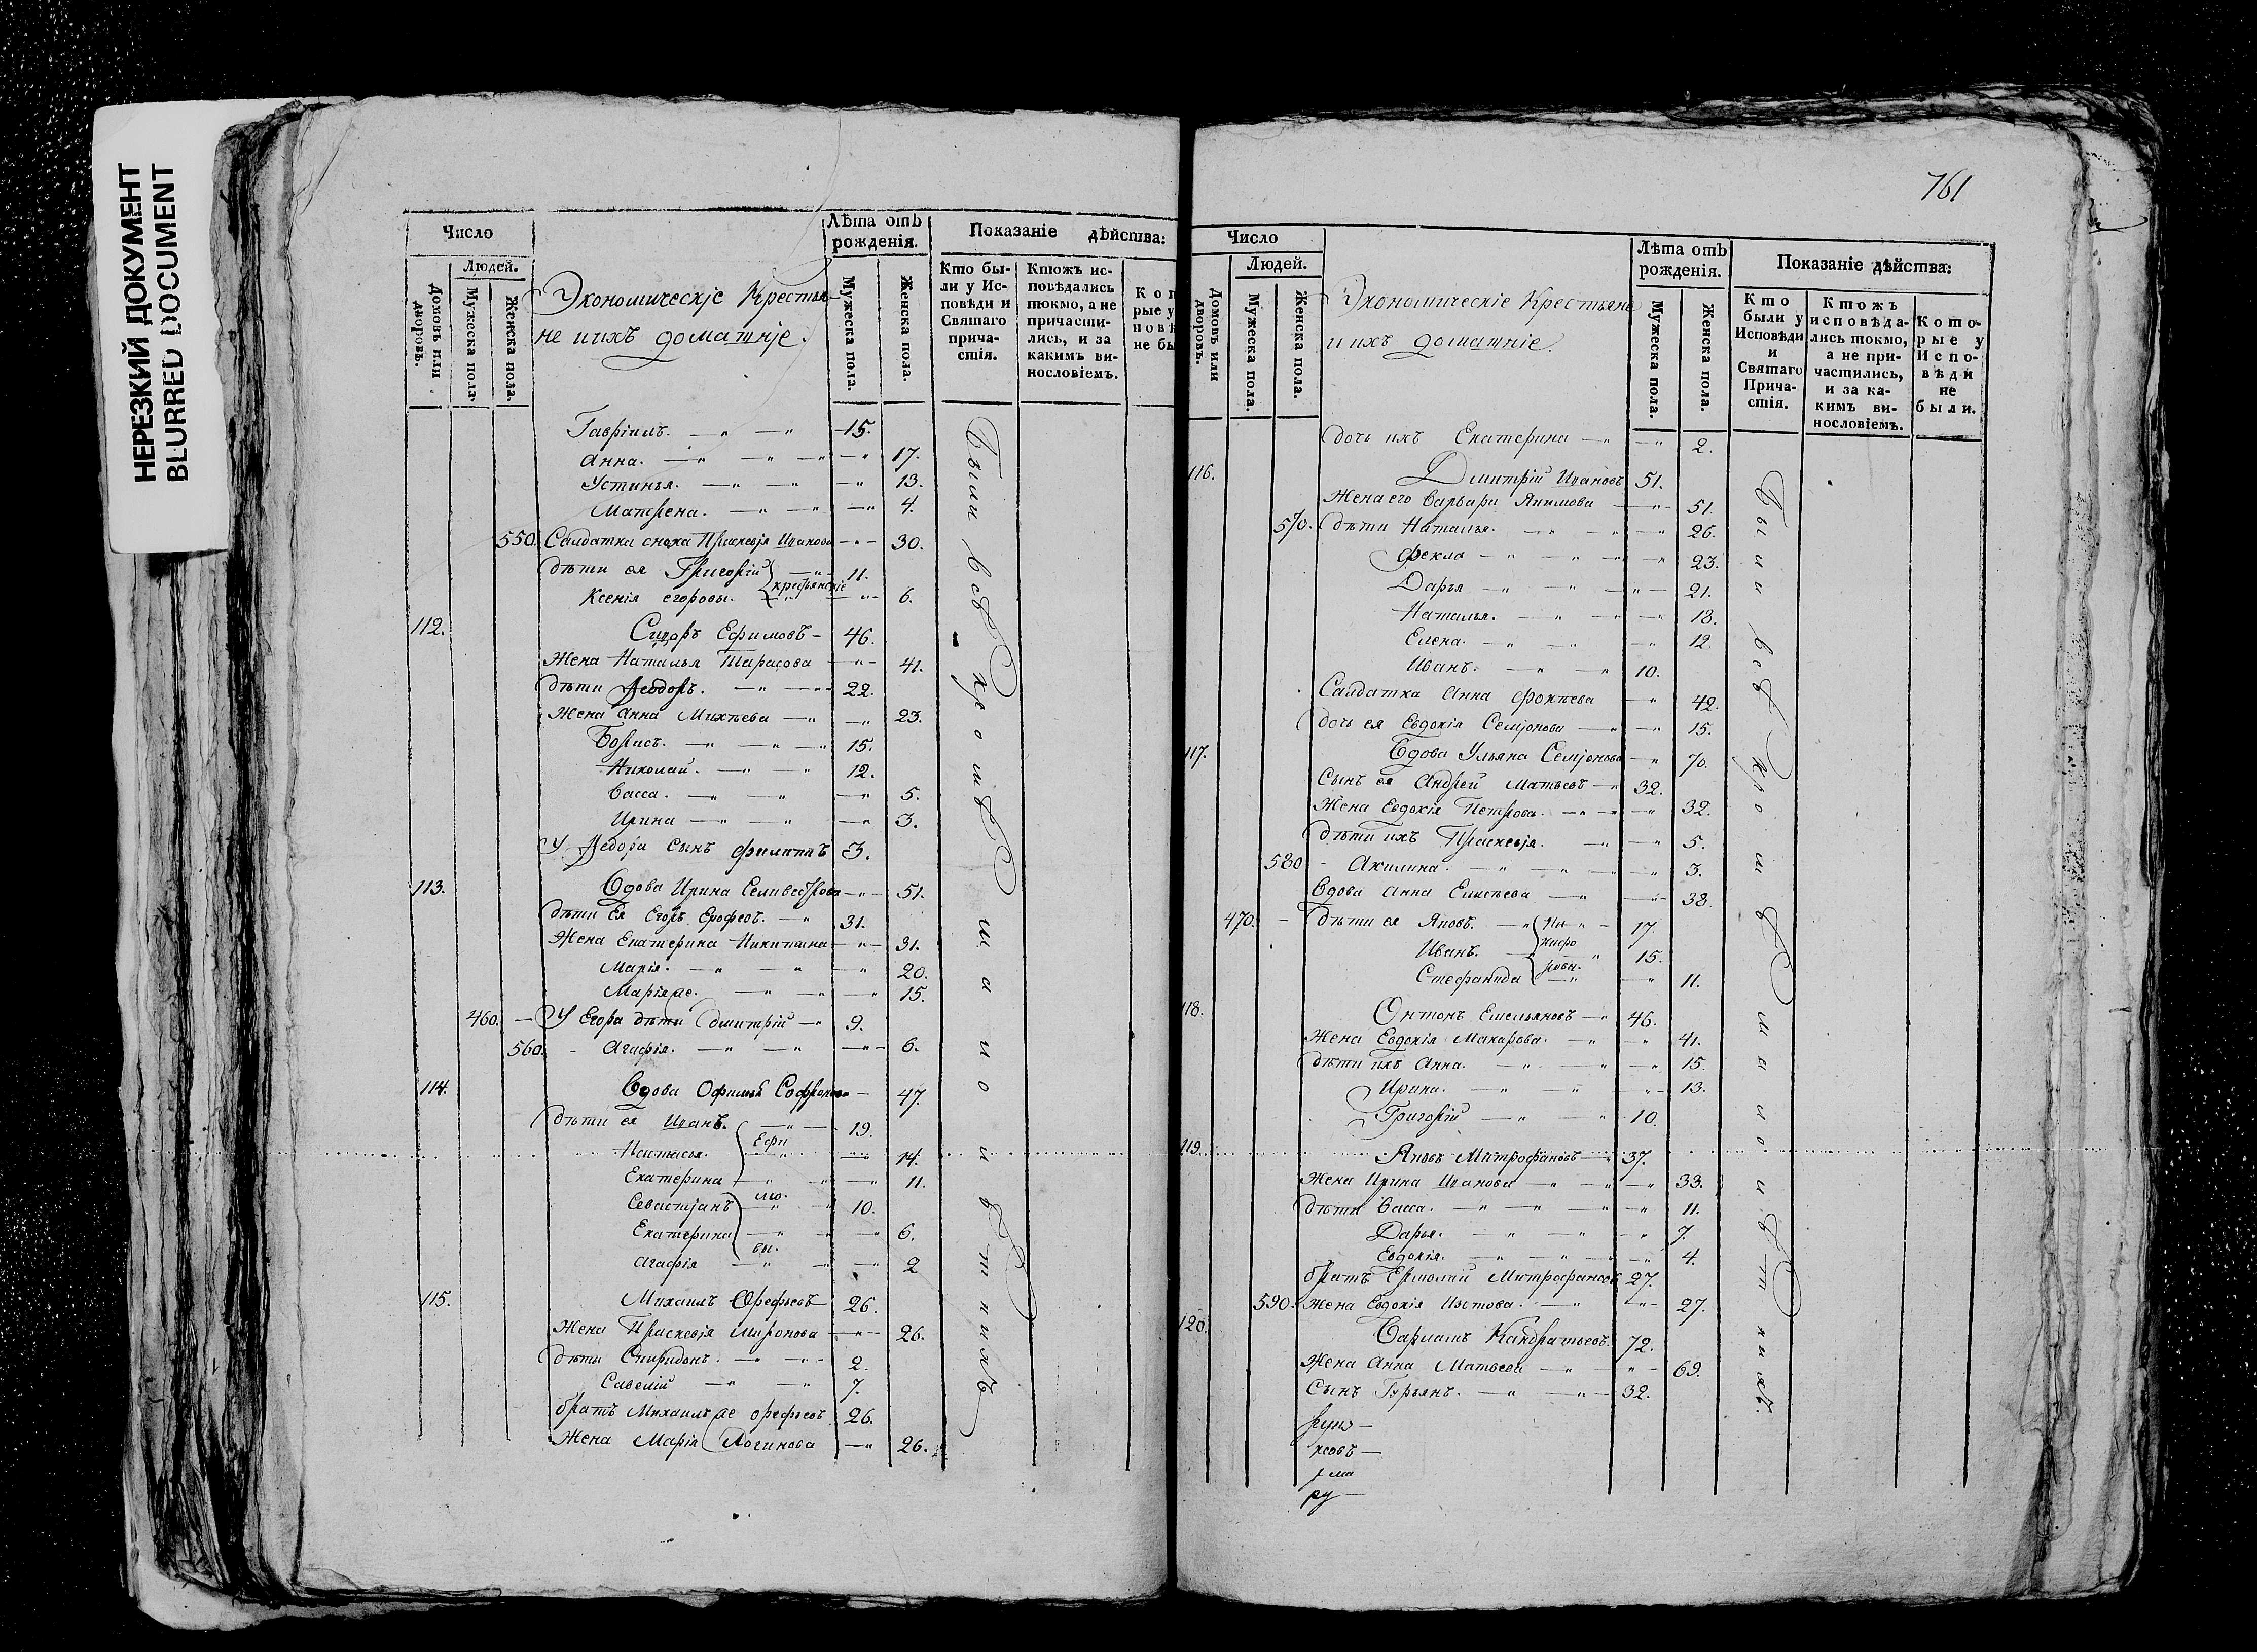 НЕРЕЗКИЙ ДОКУМЕНТ
BLURRED DOCUMENT
Число
Людей.
Домовъ или дворовъ.
Мужеска пола.
Женска пола.
Экономическіе Крестья-
не и ихъ домашніе.
Лѣта отъ рожденія.
Мужеска пола.
Женска пола.
Показаніе дѣйства:
Кто бы-
ли у Ис-
повѣди и
Святаго
прича-
стія.
Ктожъ ис-
повѣдались
токмо, а не
причасти-
лись, и за
какимъ ви-
нословіемъ.
Кот
рые у
повѣ
не бы
Гавріилъ. 15.
Анна. 17.
Устинья. 13.
Матрена. 4.
550. Салдатка сноха Праскевія Иванова 30.
дѣти ея Григорій 11.
крестьянскіе
Ксенія егоровы. 6.
112. Сидоръ Ефимовъ 46.
Жена Наталья Тарасова 41.
дѣти Ѳеодоръ. 22.
Жена Анна Михѣева 23.
Борисъ. 15.
Николай. 12.
Васса. 5.
Ирина 3.
У Ѳедора сынъ Филиппъ 3.
113. Вдова Ирина Селивестрова 51.
дѣти Ея Егоръ Ерофеевъ. 31.
Жена Екатерина Никитина 31.
Марія. 20.
Марія же. 15.
460. У Егора дѣти Дмитрій 9.
560. Агафія. 6.
114. Вдова Офимья Софронова 47.
дѣти ея Иванъ. 19.
Ефи
Настасья. 14.
Екатерина 11.
мо.
Севастіанъ 10.
Екатерина 6.
вы.
Агафія 2
115. Михаилъ Орефьевъ 26.
Жена Праскевія Миронова 26.
дѣти Спиридонъ. 2.
Савелій 7.
братъ Михаилъ же орефьевъ 26.
Жена Марія Логинова 26.
Были всѣ кромѣ малолѣтнихъ
761
Число
Людей.
Домовъ или дворовъ.
Мужеска пола.
Женска пола.
Экономическіе Крестьяне
и ихъ домашніе.
Лѣта отъ рожденія.
Мужеска пола.
Женска пола.
Показаніе дѣйства:
Кто
были у
Исповѣди
и
Святаго
Прича-
стія.
Ктожъ
исповѣда-
лись токмо,
а не при-
частились,
и за ка-
кимъ ви-
нословіемъ.
Кото-
рые у
Испо-
вѣди
не
были.
дочь ихъ Екатерина 2.
116. Дмитрій Ивановъ 51.
Жена его Варвара Якимова 51.
570. дѣти Наталья. 26.
Фекла 23.
Дарья 21.
Наталья. 18.
Елена. 12.
Иванъ. 10.
Салдатка Анна Фокѣева 42.
дочь ея Евдокія Семіонова 15.
117. Вдова Ульяна Семіонова 70.
Сынъ ея Андрей Матвеевъ 32.
Жена Евдокія Петрова. 32.
дѣти ихъ Праскевія. 5.
580 Акилина. 3.
Вдова Анна Елисѣева 38.
470. дѣти ея Яковъ. 17.
Ни
Иванъ. кифо 15.
Стефанида ровы. 11.
118. Онтонъ Емельяновъ 46.
Жена Евдокія Макарова. 41.
дѣти ихъ Анна. 15.
Ирина. 13.
Григорій 10.
119. Яковъ Митрофановъ 37.
Жена Ирина Иванова 33.
дѣти Васса. 11.
Дарья. 7.
Евдокія. 4.
братъ Ермолай Митрофановъ 27.
590. Жена Евдокія Изотова. 27.
120. Варламъ Кандратьевъ. 72.
Жена Анна Матвеева 69.
Сынъ Гурьянъ. 32.
Были всѣ кромѣ малолѣтнихъ.